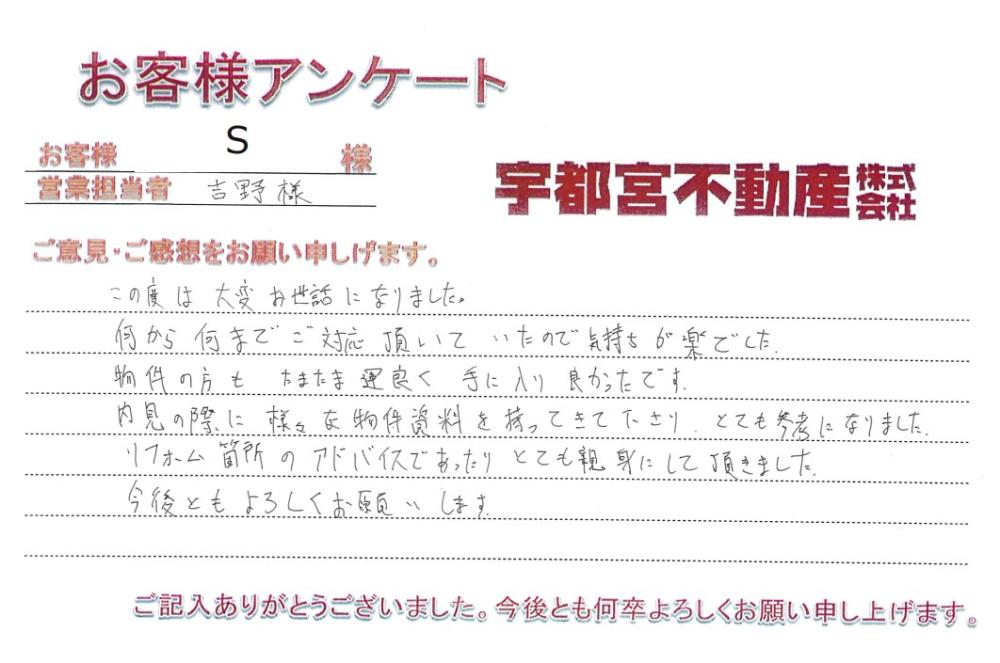 お客様アンケート
お客様 S 様
営業担当者 吉野様
宇都宮不動産株式会社
ご意見・ご感想をお願い申しげます。
この度は大変お世話になりました。
何から何までご対応頂いていたので気持ちが楽でした.
物件の方もたまたま運良く手に入り良かったです.
内見の際に様々な物件資料を持ってきて下さり、とても参考になりました.
リフォーム箇所のアドバイスであったりとても親身にして頂きました.
今後ともよろしくお願いします.
ご記入ありがとうございました。今後とも何卒よろしくお願い申し上げます。